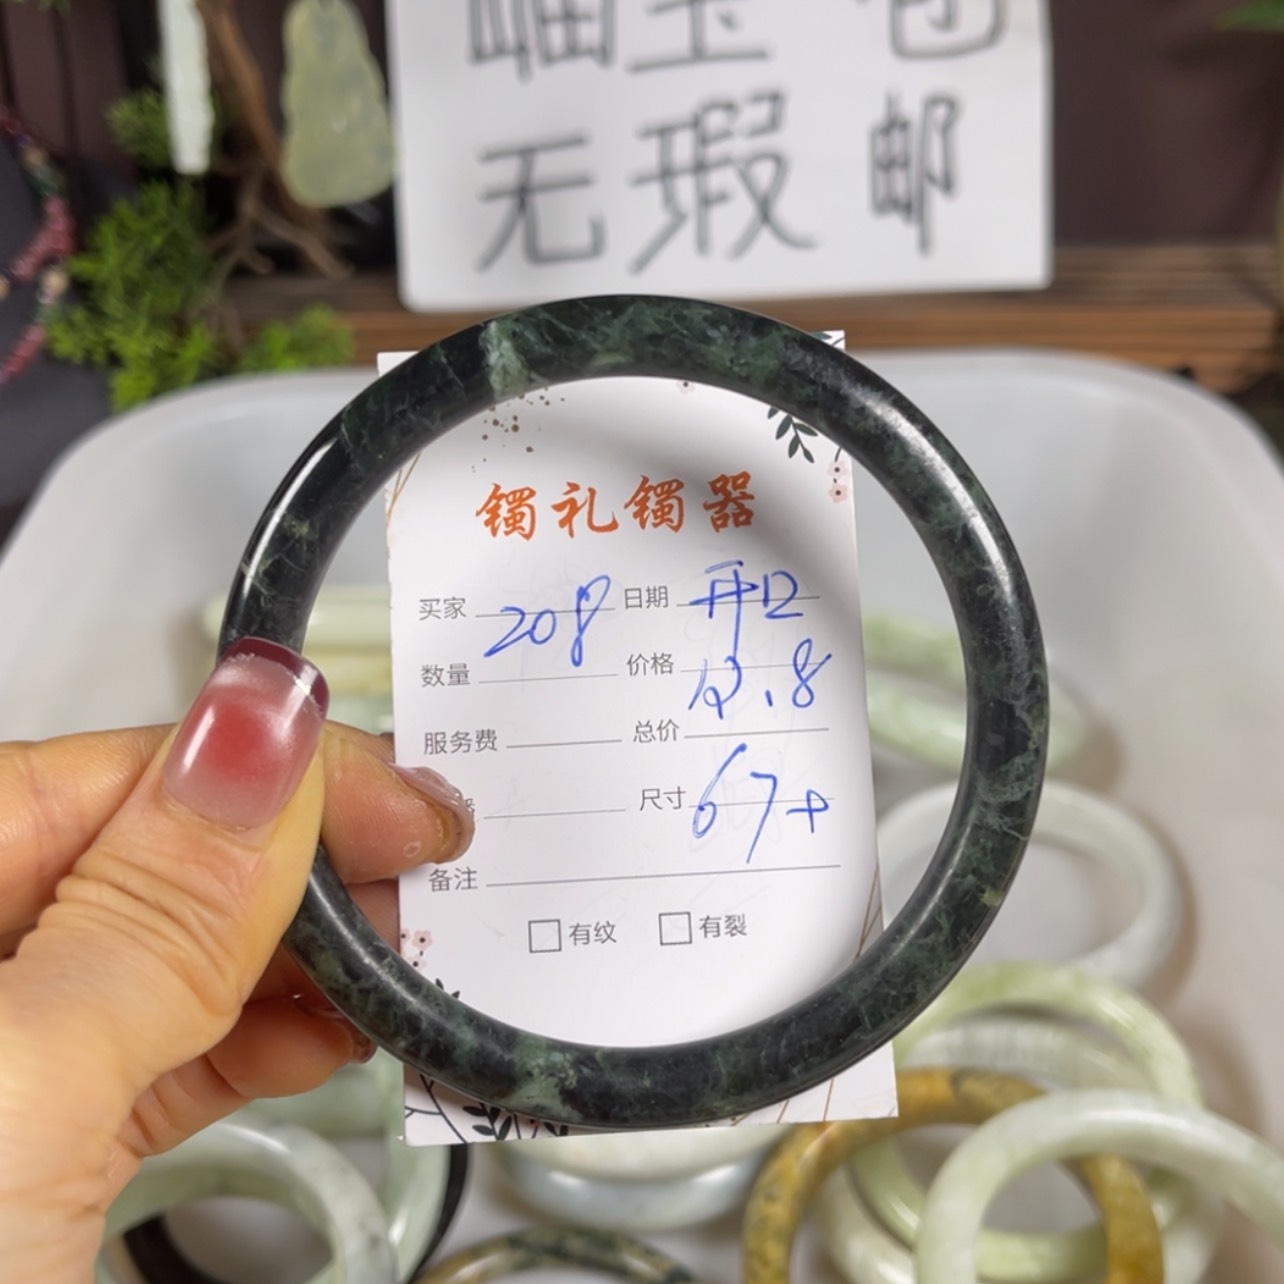 岫玉 包
无瑕 邮
镯礼镯器
买家 208 日期 开口
数量 价格 12.8
服务费 总价
尺寸 67+
备注
□有纹 □有裂